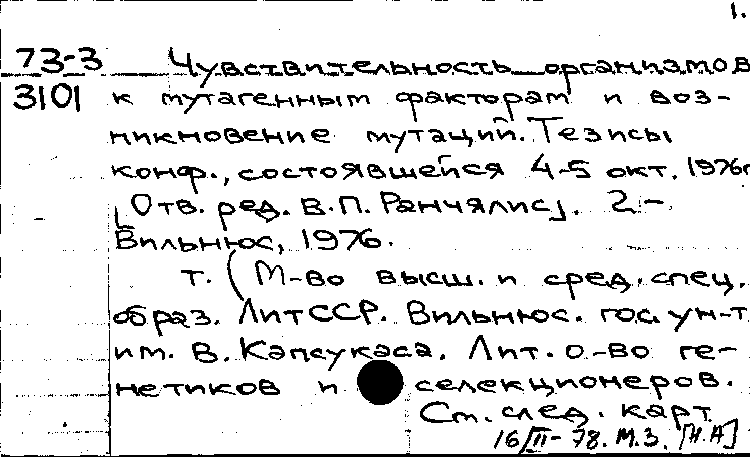 1.
73-3 Чувствительность организмов
3101 к мутагенным факторам и воз-
никновение мутаций. Тезисы
конф., состоявшейся 4-5 окт. 1976г
[Отв. ред. В.П. Ранчялис]. 2-
Вильнюс, 1976.
т. (М-во высш. и сред. спец.
образ. ЛитССР. Вильнюс. гос. ун-т
им. В. Капсукаса. Лит. о-во ге-
нетиков и селекционеров.
См. след. карт
16/II-78. М.З. [Н.А]